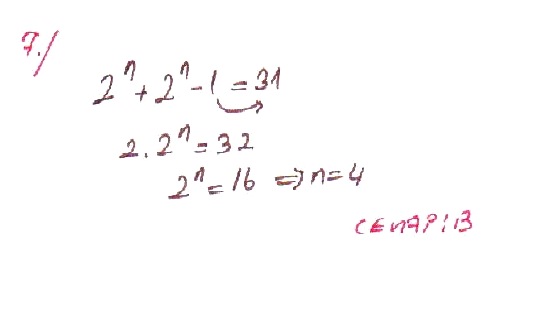 7./
2ⁿ + 2ⁿ - 1 = 31
2 . 2ⁿ = 32
2ⁿ = 16 ⇒ n = 4
CEVAP: B